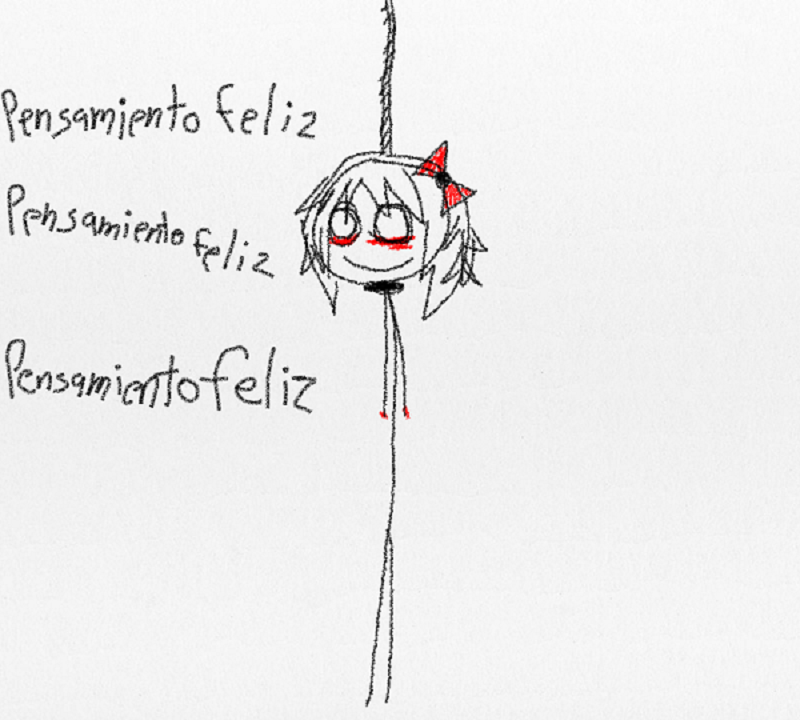 Pensamiento feliz
Pensamiento feliz
Pensamiento feliz